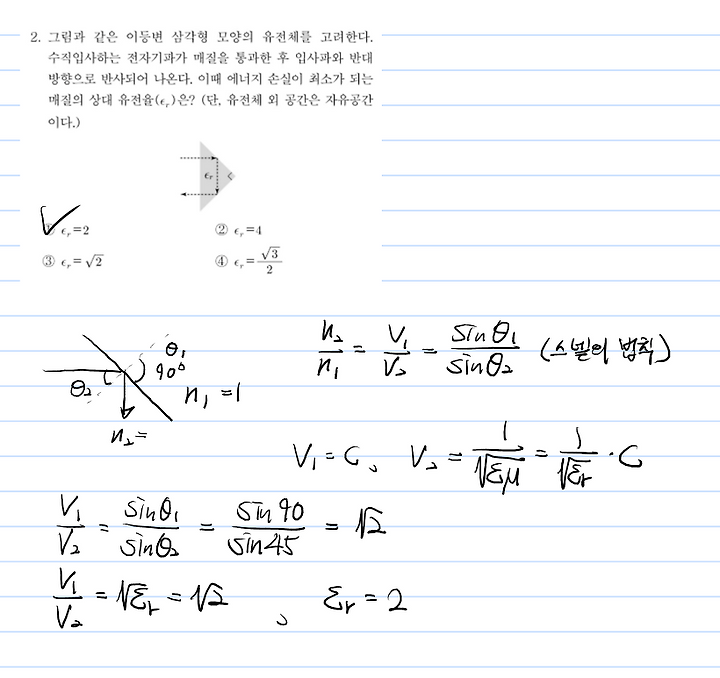 2. 그림과 같은 이등변 삼각형 모양의 유전체를 고려한다.
수직입사하는 전자기파가 매질을 통과한 후 입사파와 반대
방향으로 반사되어 나온다. 이때 에너지 손실이 최소가 되는
매질의 상대 유전율(ϵᵣ)은? (단, 유전체 외 공간은 자유공간
이다.)
ϵᵣ
ϵᵣ=2 ② ϵᵣ=4
③ ϵᵣ=√2 ④ ϵᵣ=√3/2
θ₁
90°
θ₂
n₁=1
n₂=
n₂/n₁ = V₁/V₂ = sinθ₁/sinθ₂ (스넬의 법칙)
V₁=C, V₂=1/√(εμ)=1/√εᵣ·C
V₁/V₂ = sinθ₁/sinθ₂ = sin90/sin45 = √2
V₁/V₂ = √εᵣ = √2, εᵣ=2